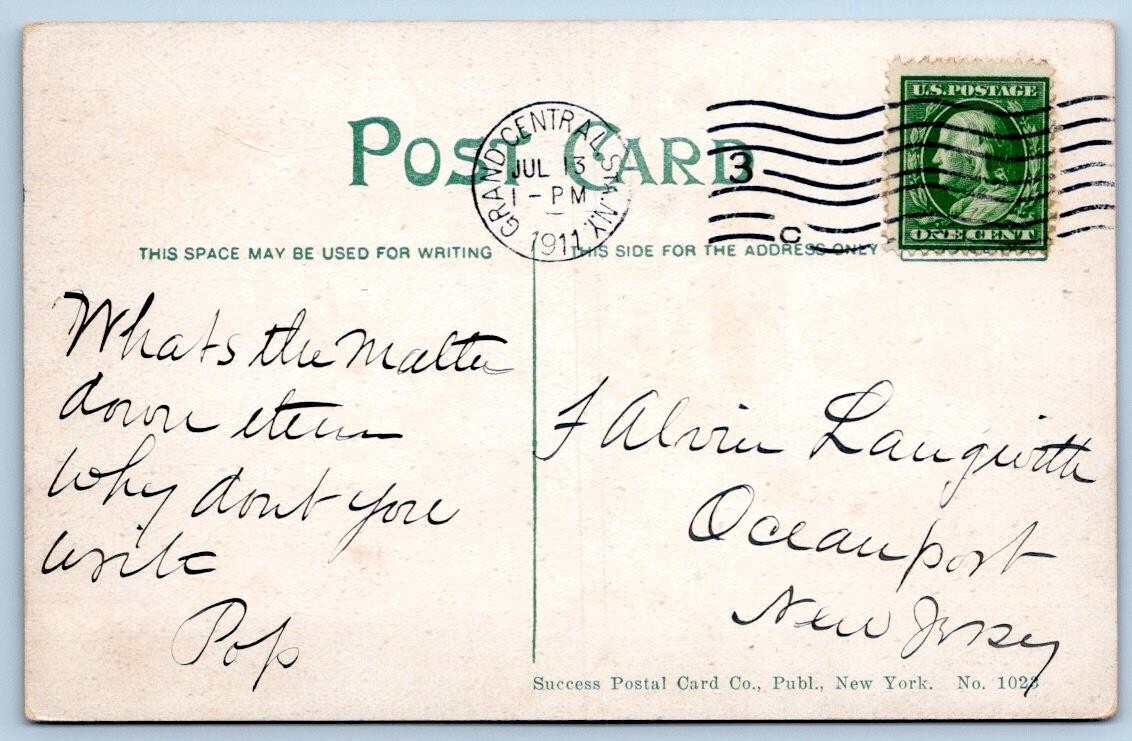 POST CARD
GRAND CENTRAL STA. N.Y.
JUL 13
1 - PM
1911
3
C
U.S. POSTAGE
ONE CENT
THIS SPACE MAY BE USED FOR WRITING
THIS SIDE FOR THE ADDRESS ONLY
Whats the Matter
down
Why dont you
write
Pop
F Alvin
Oceanport
New Jersey
Success Postal Card Co., Publ., New York. No. 1023